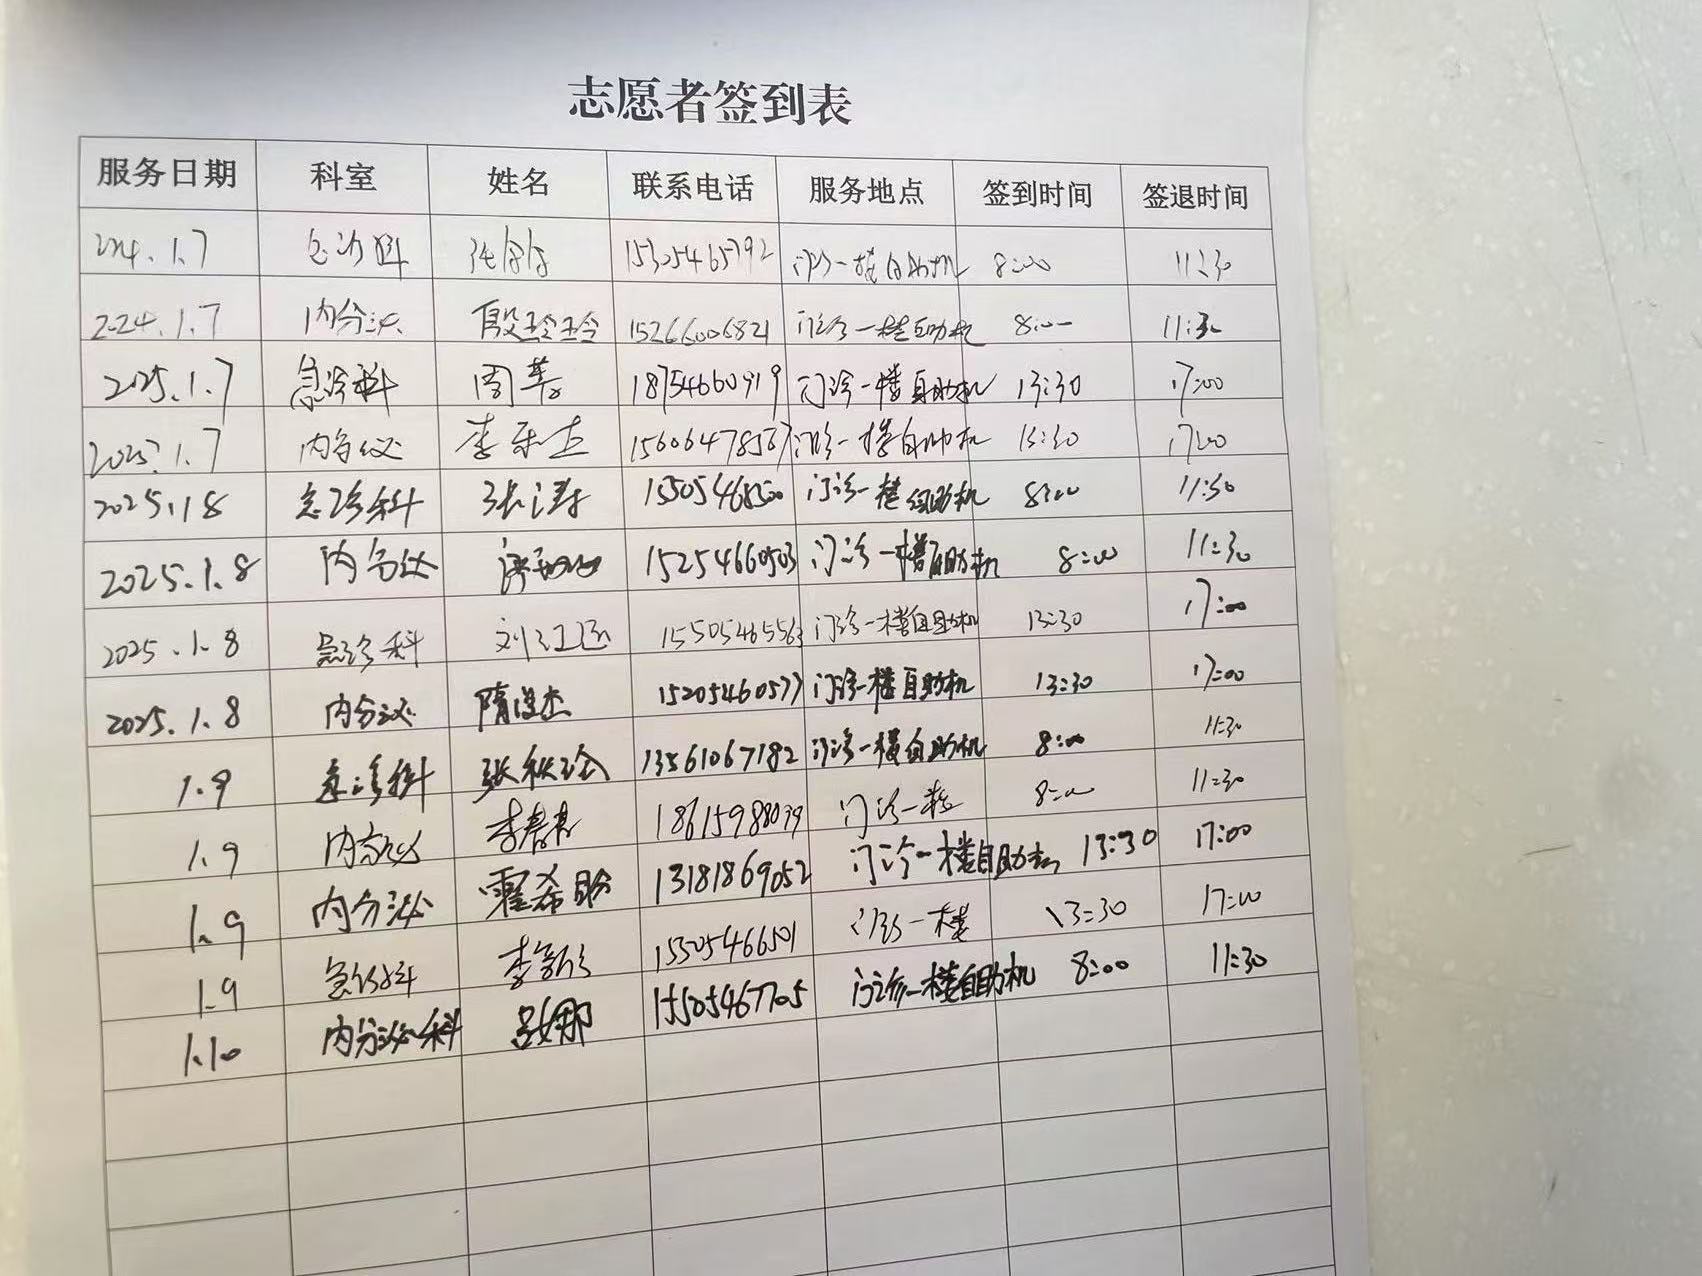 志愿者签到表
服务日期 科室 姓名 联系电话 服务地点 签到时间 签退时间
1.7 急诊科 15305465792 门诊一楼自助机 8:00 11:30
2024.1.7 内分泌 殷玲玲 15266006821 门诊一楼自助机 8:00 11:30
2025.1.7 急诊科 周菁 18754660919 门诊一楼自助机 13:30 17:00
2025.1.7 内分泌 李乐杰 15606478567 门诊一楼自助机 13:30 17:00
2025.1.8 急诊科 张涛 门诊一楼自助机 8:00 11:30
2025.1.8 内分泌 15254660503 门诊一楼自助机 8:00 11:30
2025.1.8 急诊科 15505465563 门诊一楼自助机 13:30 17:00
2025.1.8 内分泌 隋俊杰 15205460577 门诊一楼自助机 13:30 17:00
1.9 急诊科 张秋玲 13561067182 门诊一楼自助机 8:00 11:30
1.9 内分泌 18615988039 门诊一楼 8:00 11:30
1.9 内分泌 霍希盼 13181869052 门诊一楼自助机 13:30 17:00
1.9 急诊科 15305466501 门诊一楼 13:30 17:00
1.10 内分泌科 吕娜 15505467705 门诊一楼自助机 8:00 11:30